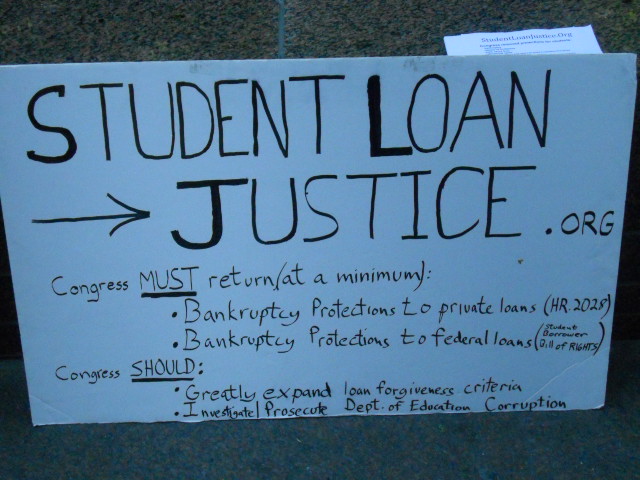 StudentLoanJustice.Org
STUDENT LOAN
→ JUSTICE.ORG
Congress MUST return(at a minimum):
• Bankruptcy Protections to private loans (HR.2028)
• Bankruptcy Protections to federal loans (Student Borrower Bill of RIGHTS)
Congress SHOULD:
• Greatly expand loan forgiveness criteria
• Investigate/Prosecute Dept. of Education Corruption